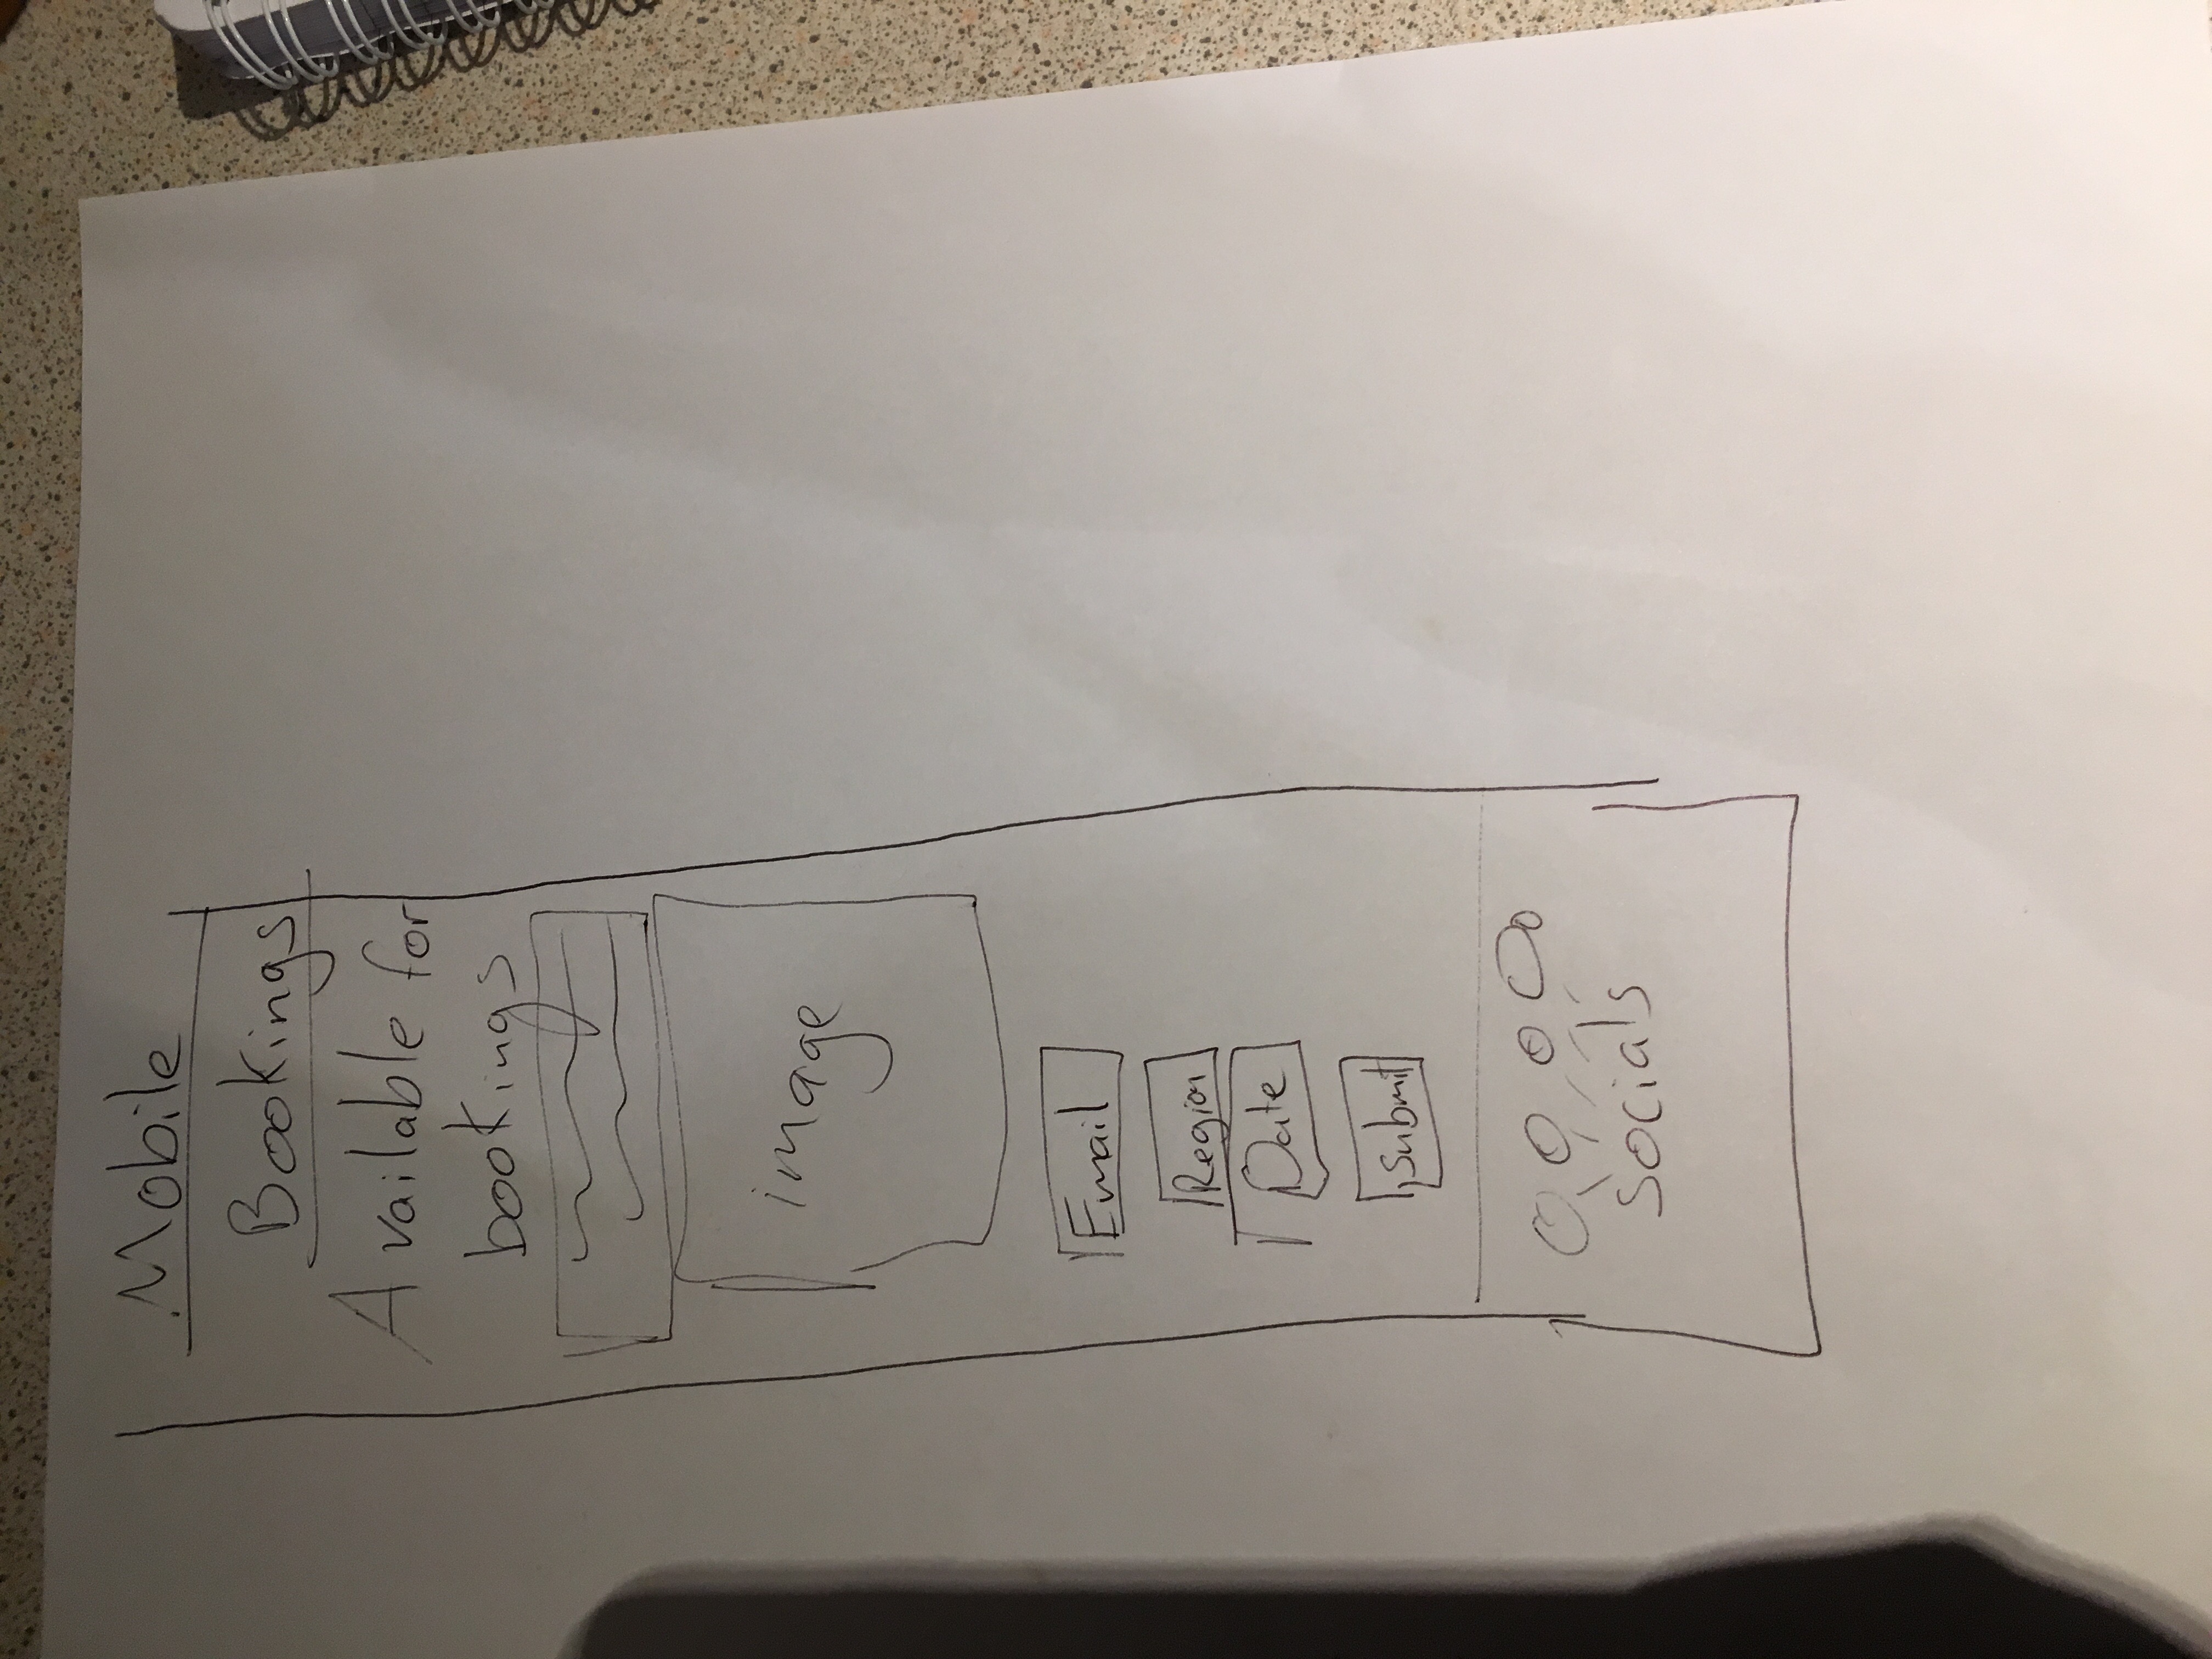 Mobile
Bookings
Available for
bookings
image
Email
Region
Date
Submit
Socials